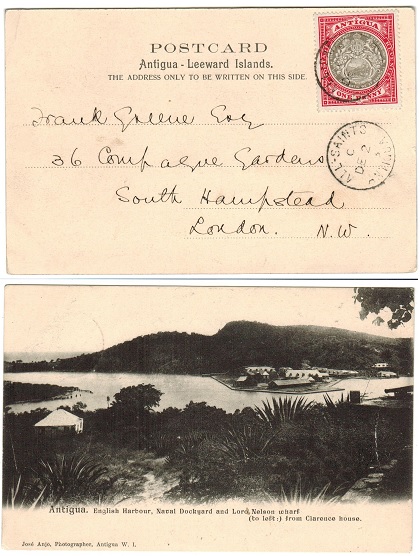 POSTCARD
Antigua - Leeward Islands.
THE ADDRESS ONLY TO BE WRITTEN ON THIS SIDE.
ANTIGUA
ONE PENNY
ALL-SAINTS
C
DE 2
Frank Greene Esq
36 Compayne Gardens
South Hampstead
London. N.W.
Antigua. English Harbour, Naval Dockyard and Lord Nelson wharf
(to left:) from Clarence house.
José Anjo, Photographer, Antigua W. I.